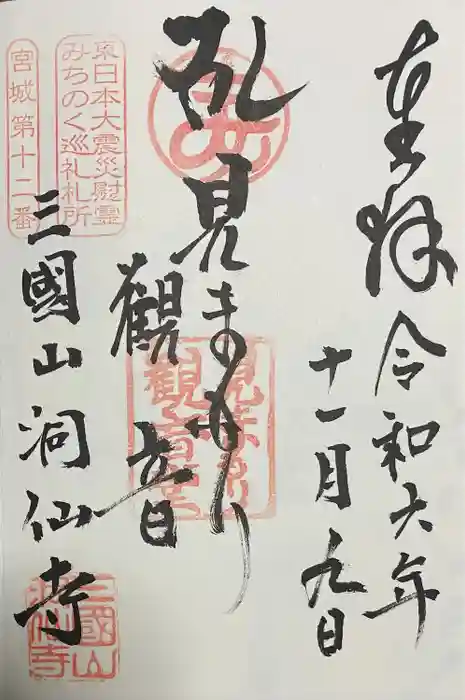 奉拝 令和六年
十一月九日
見まもり
觀音
三國山洞仙寺
東日本大震災慰霊
みちのく巡礼札所
宮城第十二番
三國山
洞仙寺